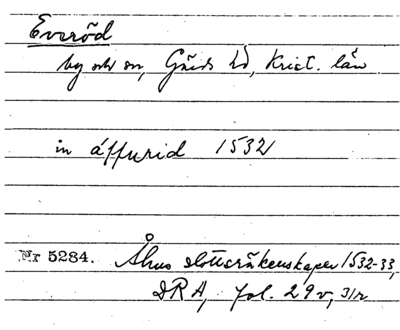 Everöd
by och sn, Gärds hd, Krist. län
in áffurid 1532
Nr 5284. Åhus slottsräkenskaper 1532-33,
DRA, fol. 29v, 31r